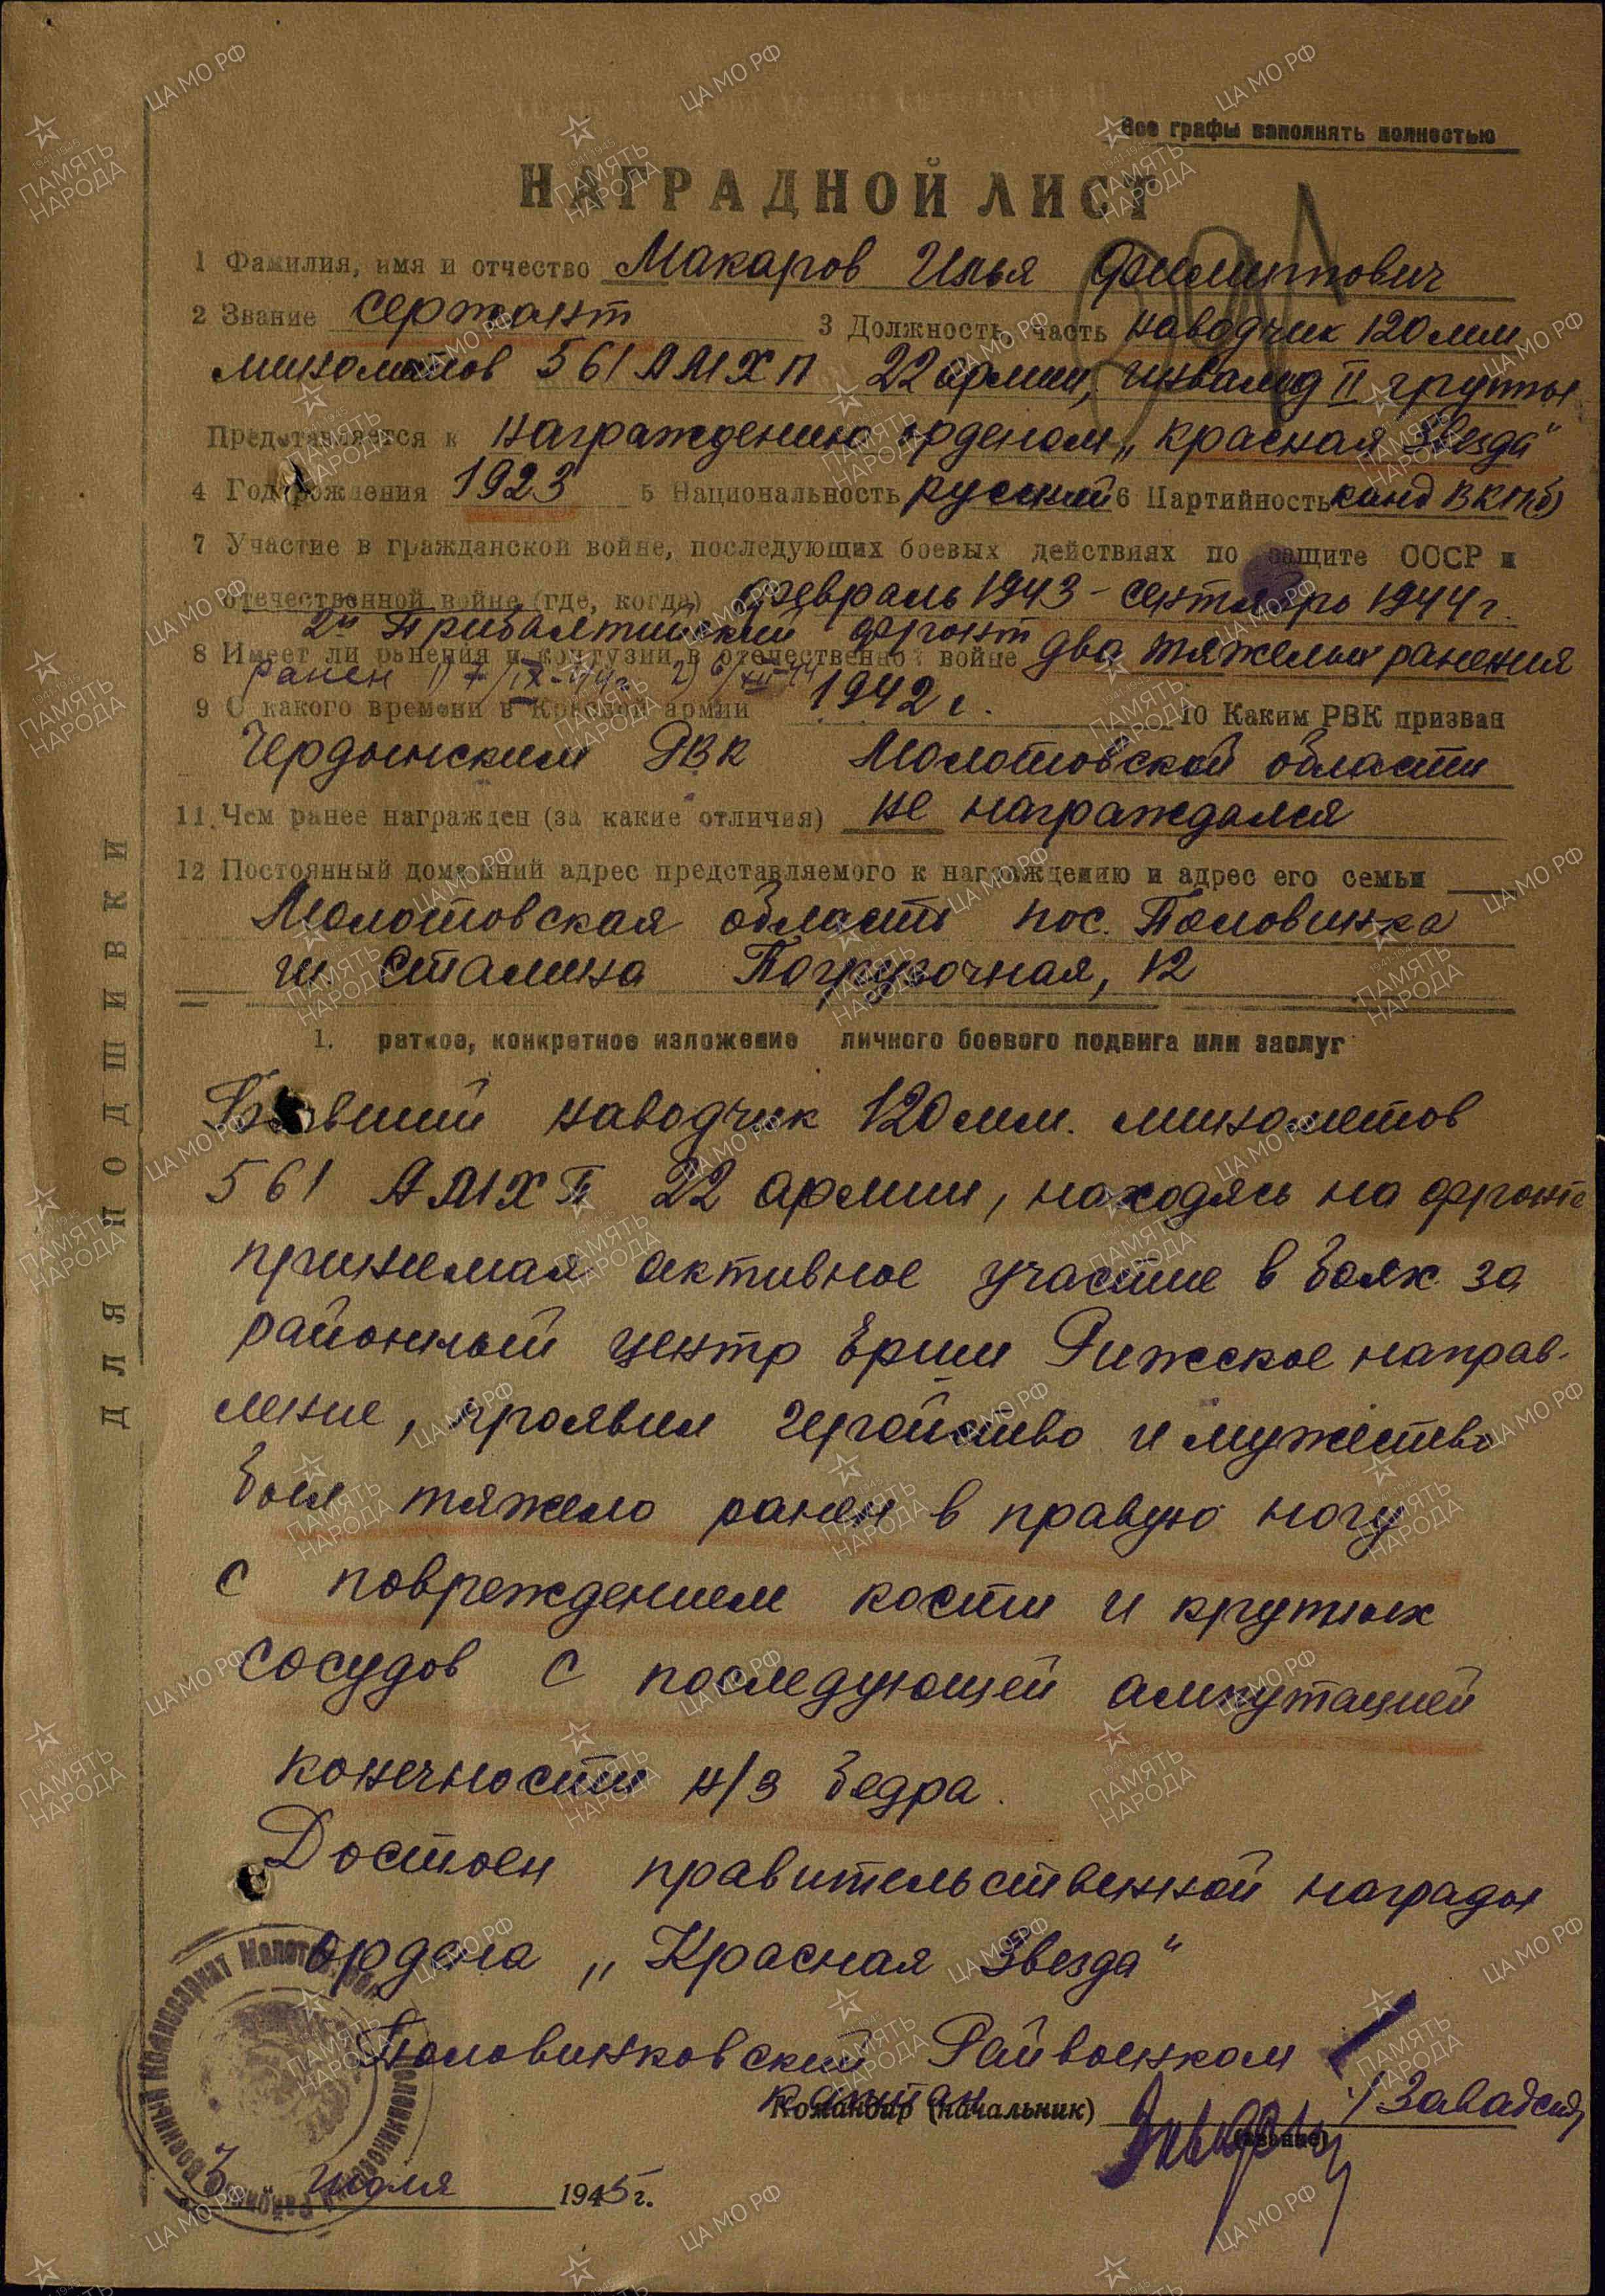 Все графы заполнять полностью
НАГРАДНОЙ ЛИСТ
1 Фамилия, имя и отчество Макаров Илья Филиппович
2 Звание сержант 3 Должность, часть наводчик 120 мм
минометов 561 АМХП 22 армии, инвалид II группы
Представляется к награждению орденом „Красная Звезда"
4 Год рождения 1923 5 Национальность русский 6 Партийность канд ВКП(б)
7 Участие в гражданской войне, последующих боевых действиях по защите СССР и
отечественной войне (где, когда) февраль 1943 - сентябрь 1944 г.
2й Прибалтийский фронт
8 Имеет ли ранения и контузии в отечественной войне два тяжелых ранения
ранен 1) 7/IX-44г 2) 6/XII-44
9 С какого времени в Красной армии 1942 г. 10 Каким РВК призван
Чердынским РВК Молотовской области
11. Чем ранее награжден (за какие отличия) не награждался
12 Постоянный домашний адрес представляемого к награждению и адрес его семьи
Молотовская область пос. Половинка
ш. Сталина Погрузочная, 12
1. раткое, конкретное изложение личного боевого подвига или заслуг
Бывший наводчик 120 мм. минометов
561 АМХП 22 армии, находясь на фронте
принимая активное участие в боях за
районный центр Ерши Рижское направ-
ление, проявил геройство и мужество
был тяжело ранен в правую ногу
с повреждением кости и крупных
сосудов с последующей ампутацией
конечности н/3 бедра.
Достоен правительственной награды
ордена „Красная Звезда"
Половинковский Райвоенком
капитан
Командир (начальник) /Завадский
(звание)
3 июля 1945 г.
ДЛЯ ПОДШИВКИ
ЦА МО РФ
ПАМЯТЬ НАРОДА
1941-1945